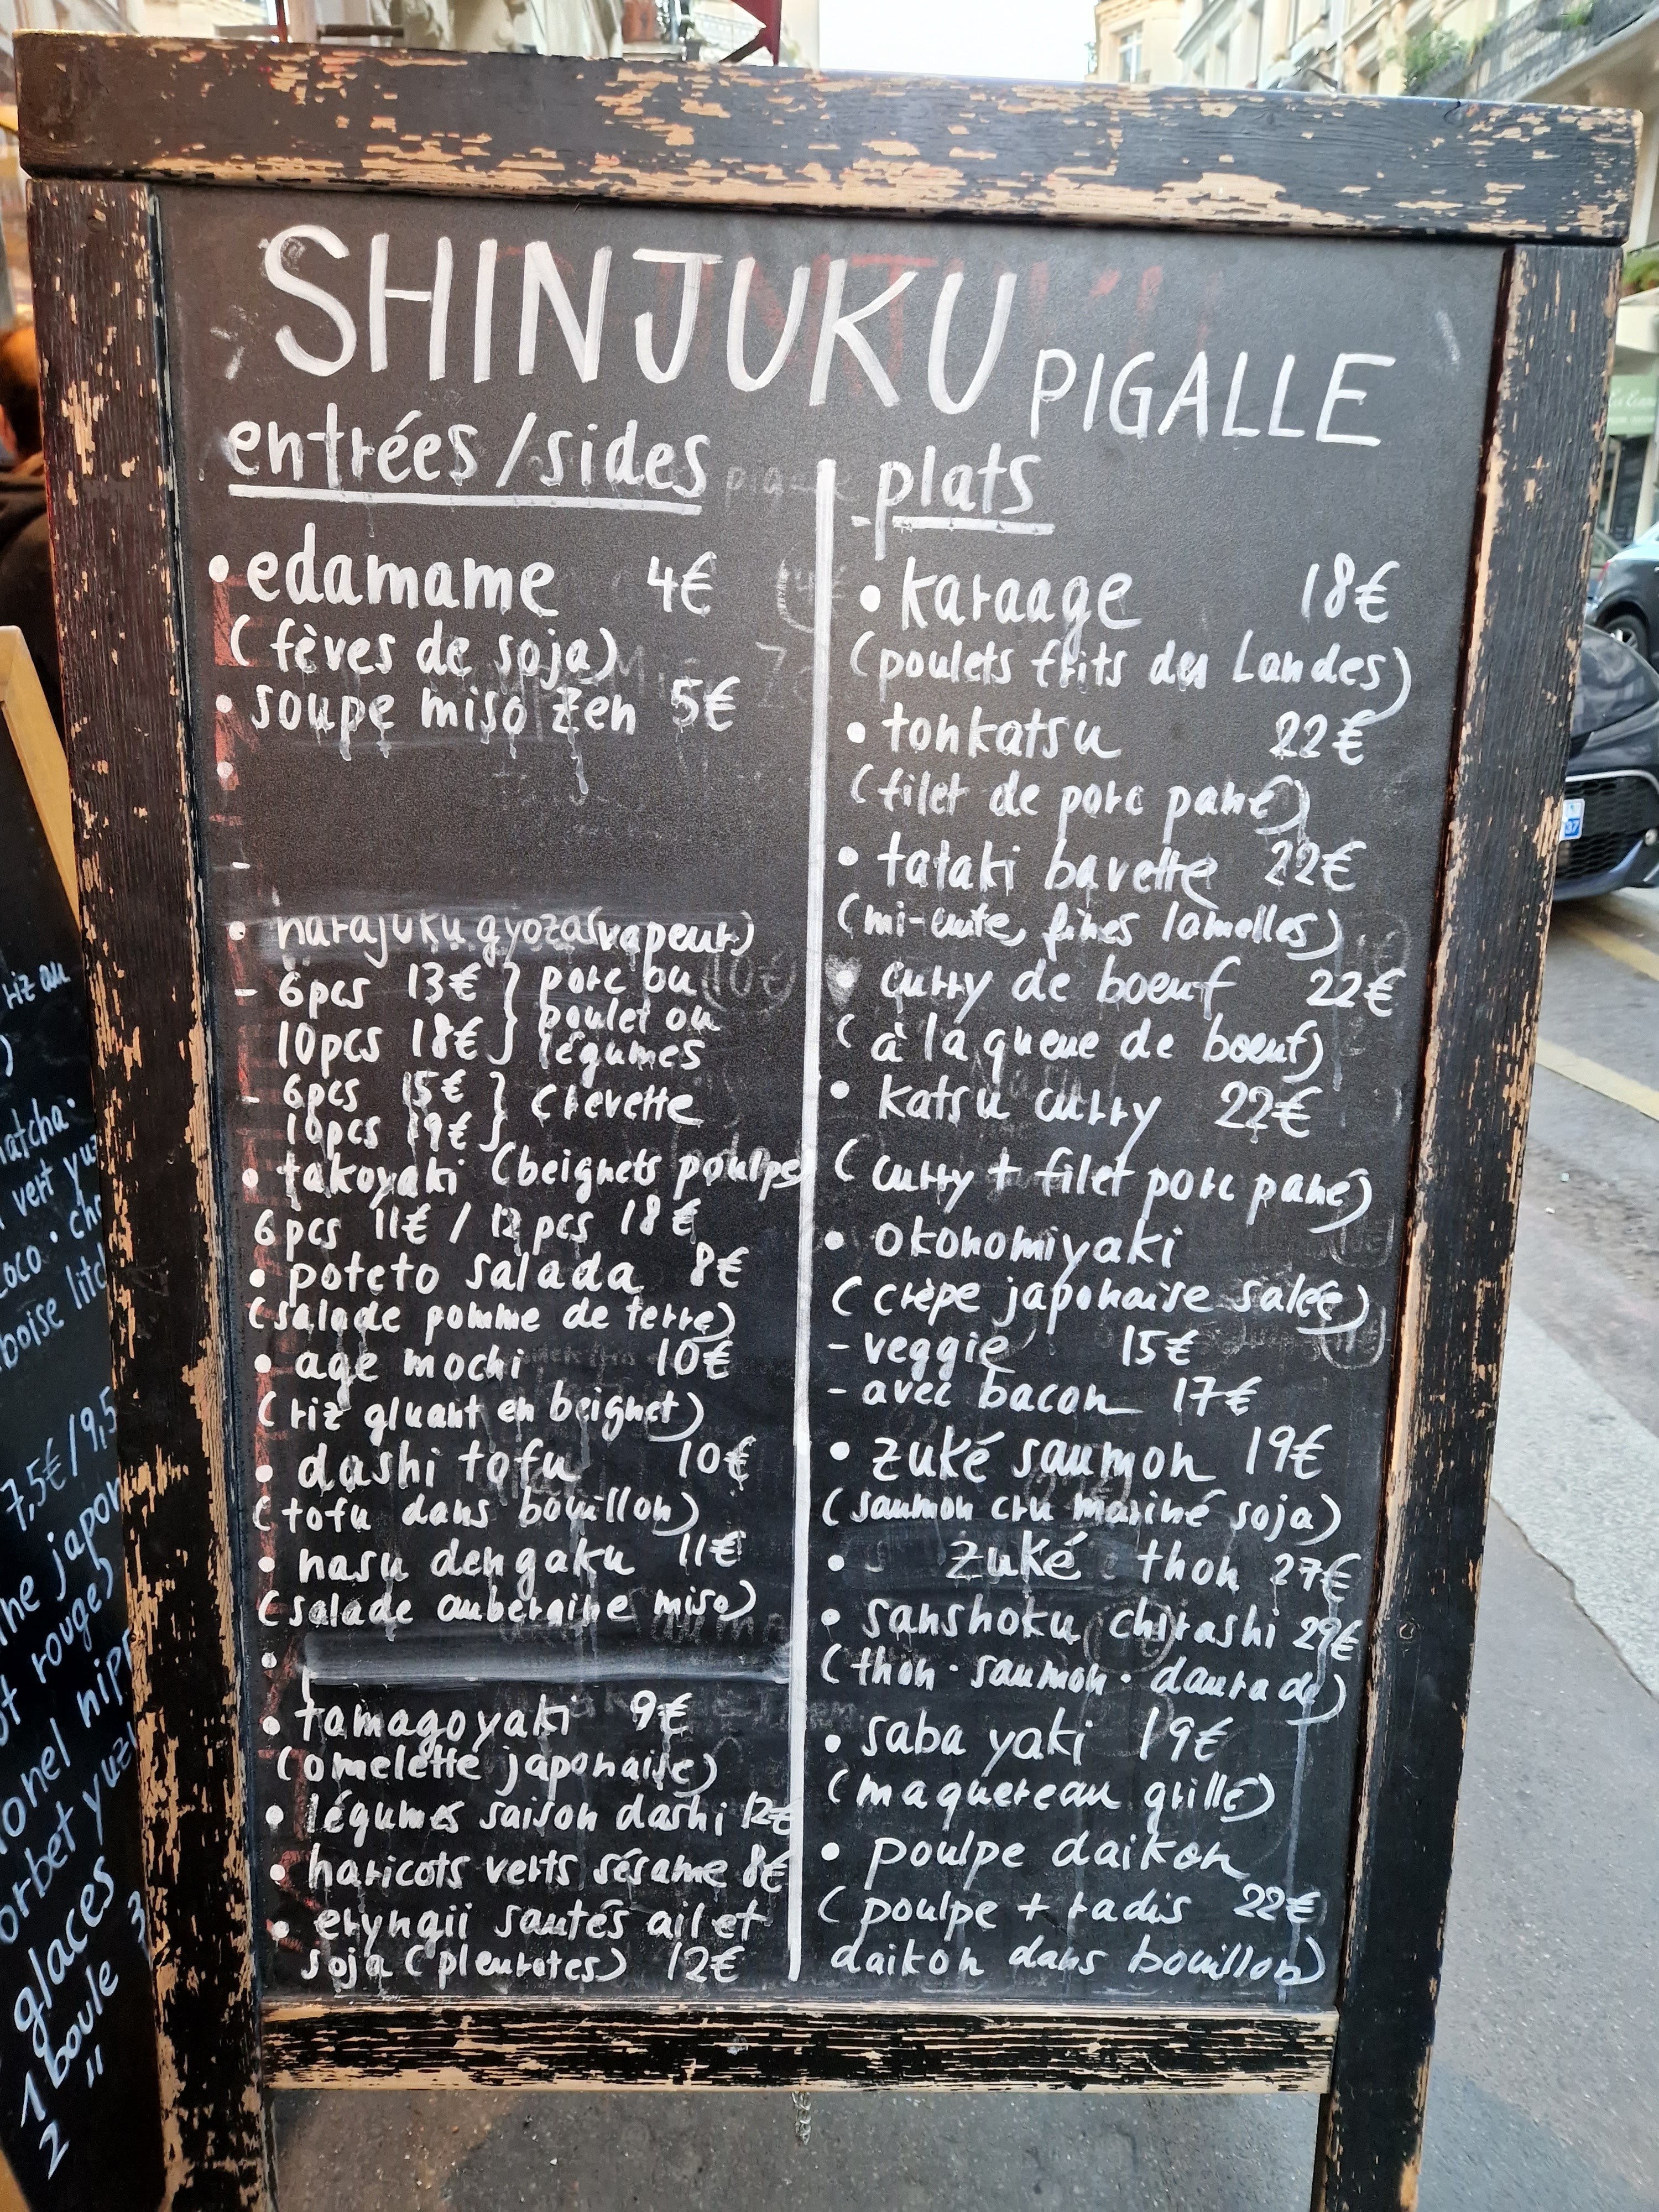 SHINJUKU PIGALLE
entrées/sides
• edamame 4€
(fèves de soja)
• soupe miso zen 5€
•
-
• harajuku gyoza (vapeur)
- 6pcs 13€ } porc ou
poulet ou
10pcs 18€ } légumes
- 6pcs 15€ } crevette
10pcs 19€ }
• takoyaki (beignets poulpe)
6pcs 11€ / 12pcs 18€
• poteto salada 8€
(salade pomme de terre)
• age mochi 10€
(riz gluant en beignet)
• dashi tofu 10€
(tofu dans bouillon)
• nasu dengaku 11€
(salade aubergine miso)
•
• tamagoyaki 9€
(omelette japonaise)
• légumes saison dashi 12€
• haricots verts sésame 8€
• eryngii sautés ail et
soja (pleurotes) 12€
plats
• karaage 18€
(poulets frits des Landes)
• tonkatsu 22€
(filet de porc pané)
• tataki bavette 22€
(mi-cuite, fines lamelles)
• curry de boeuf 22€
(à la queue de boeuf)
• katsu curry 22€
(curry + filet porc pané)
• okonomiyaki
(crèpe japonaise salée)
- veggie 15€
- avec bacon 17€
• zuké saumon 19€
(saumon cru mariné soja)
• zuké thon 27€
• sanshoku chirashi 29€
(thon · saumon · daurade)
• saba yaki 19€
(maquereau grillé)
• poulpe daikon
(poulpe + radis 22€
daikon dans bouillon)
riz au
matcha ·
vert yuz
coco · cho
boise litc
7,5€/9,5
japon
rouge)
orbet yuz
glaces
1 boule 3
2 "